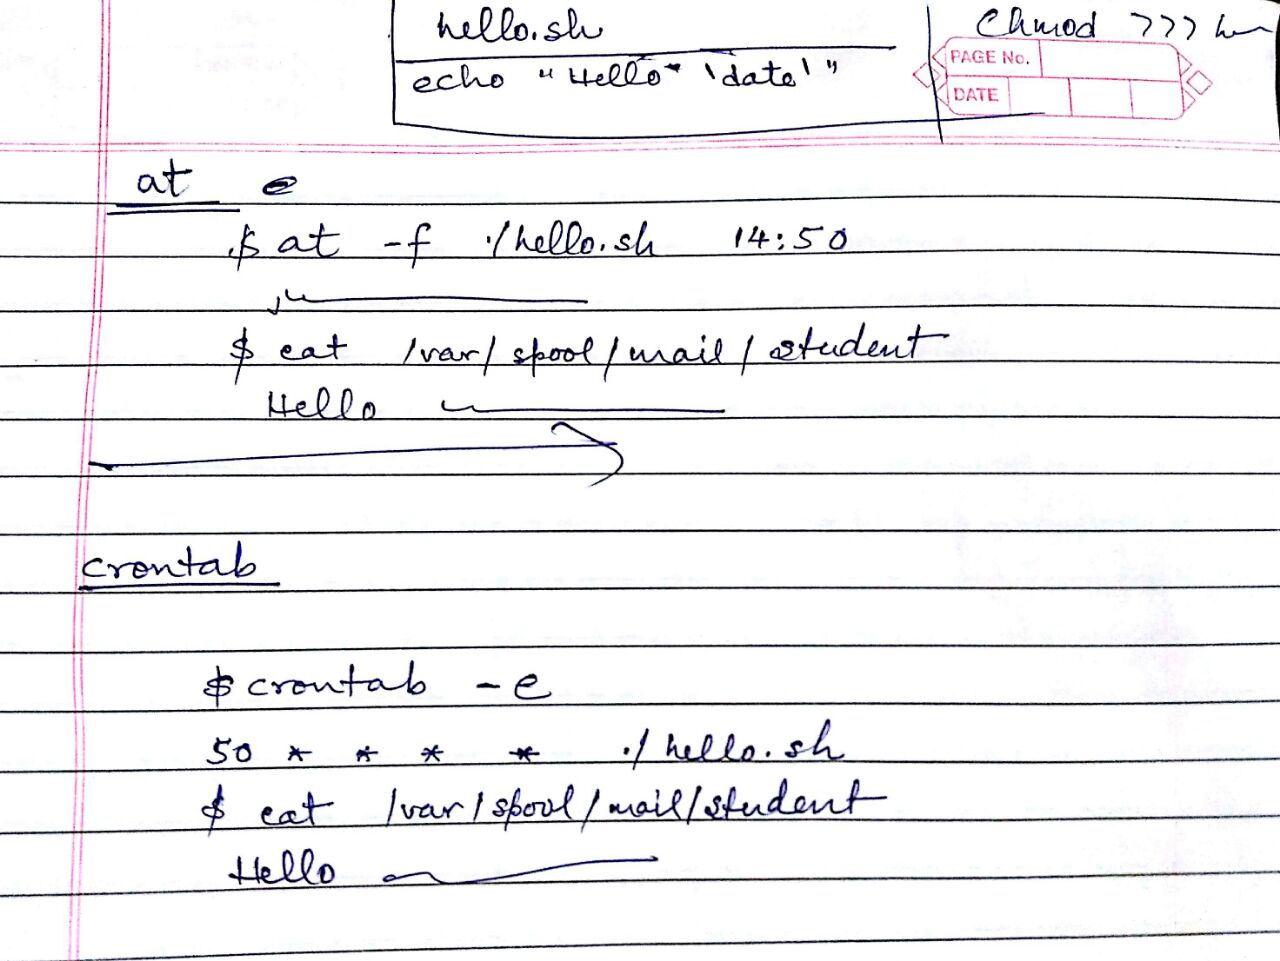 hello.sh
Chmod 777
echo "Hello 'date'"
PAGE No.
DATE
at
$ at -f ./hello.sh 14:50
$ cat /var/spool/mail/student
Hello
crontab
$ crontab -e
50 * * * * ./hello.sh
$ cat /var/spool/mail/student
Hello